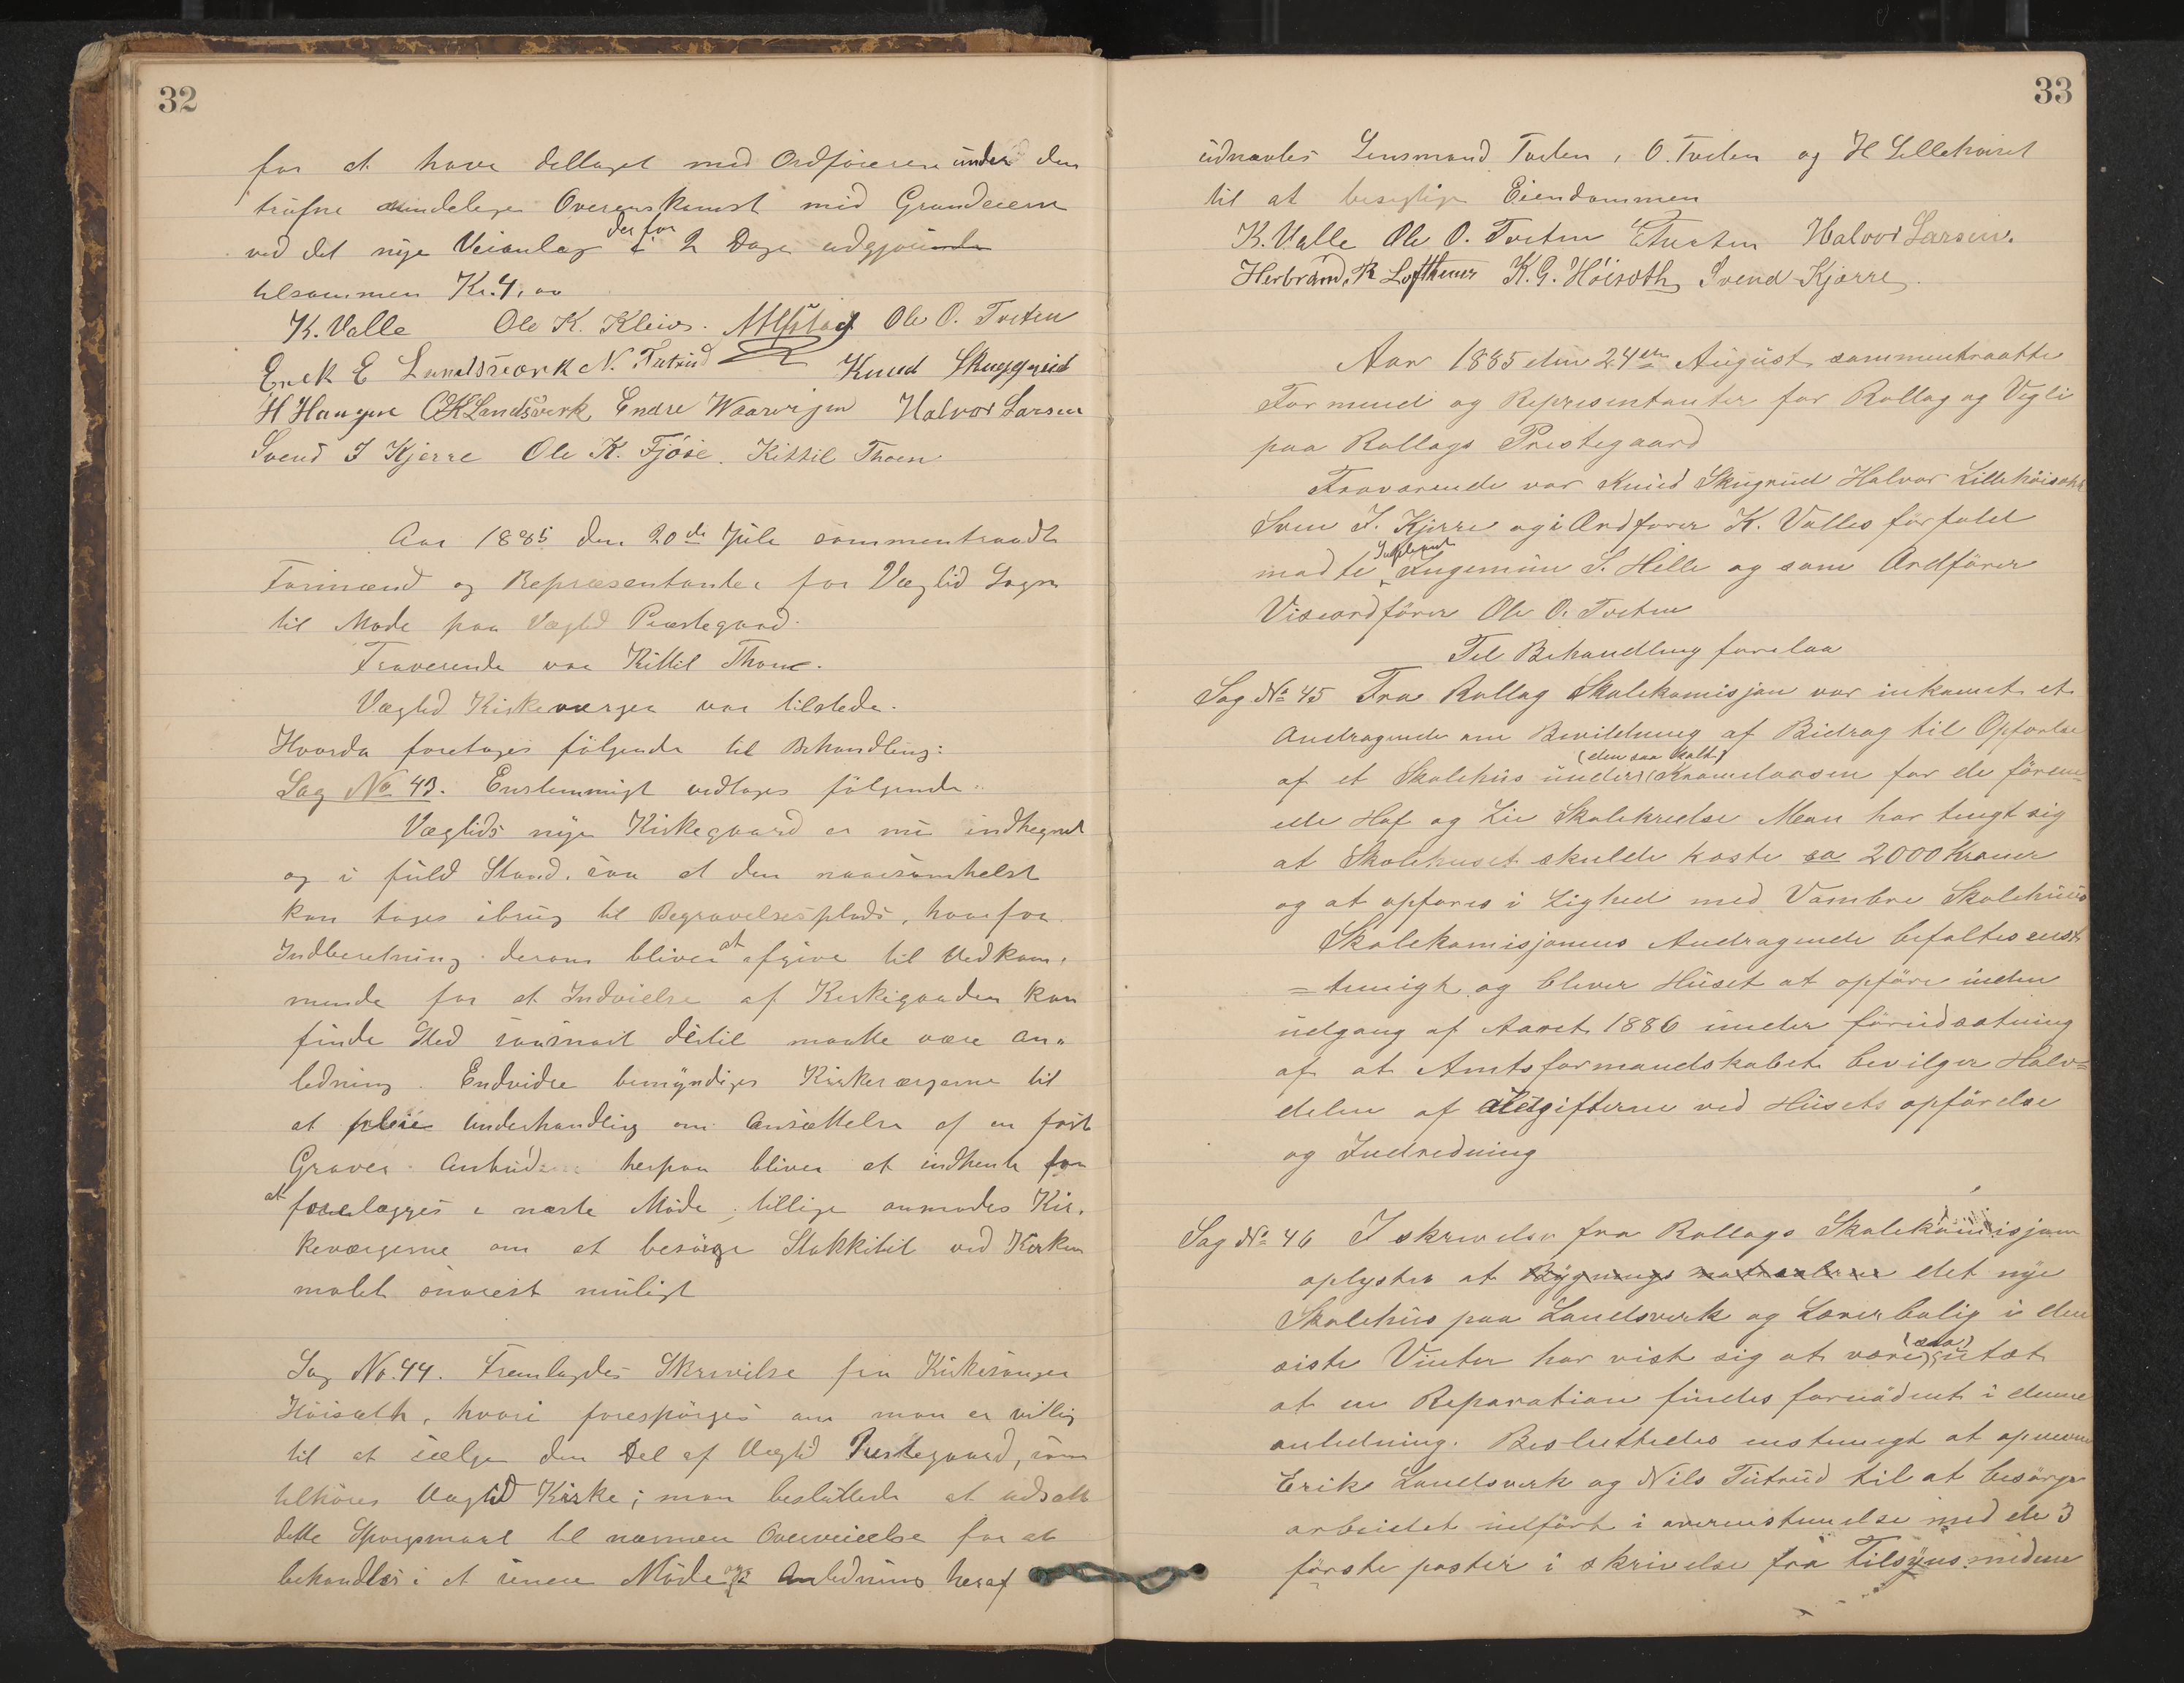 32
for at have deltaget med Ordføreren under den
trufne mindelige Overenskomst med Grundeierne
ved det nye Veianlæg der for i 2 Dage udgjørende
tilsammen Kr. 4,00
K. Valle Ole K. Kleiv. Ole O. Tveten
Erek E Landsværk N. Tutrud Knud Skuggrud
H Haugen O K Landsverk Endre Waarvigen Halvor Larsen
Svend J Kjerre Ole K. Fjöse. Kittil Thoen
Aar 1885 den 20de Juli sammentraadte
Formænd og Repræsentanter for Væglid Sogn
til Møde paa Væglid Præstegaard.
Fraverende var Kittil Thoen.
Væglid Kirkeværger var tilstede.
Hvorda foretoges fölgende til Behandling:
Sag No 43. Enstemmigt vedtoges fölgende:
Væglids nye Kirkegaard er nu indhegnet
og i fuld Stand, saa at den naarsomhelst
kan tages ibrug til Begravelsesplads, hvorfor
Indberetning derom bliver at afgive til Vedkom-
mende for at Indvielse af Kirkegaarden kan
finde Sted saasnart dertil maatte være An-
ledning. Endvidre bemyndiges Kirkeværgerne til
at pleie Underhandling om Ansættelse af en fast
Graver. Anbud herpaa bliver at indhente for
at forelægges i næste Möde; tillige anmodes Kir-
keværgerne om at besörge Stakkitit ved Kirken
malet snarest muligt
Sag No. 44. Fremlagdes Skrivelse fra Kirkesanger
Höisæth, hvori forespörges om man er villig
til at sælge den Del af Væglid Prestegaard, som
tilhörer Væglid Kirke; man besluttede at udsætte
dette Spørgsmaal til nærmere Overveielse for at
behandles i et senere Möde og i Anledning heraf
33
udnævtes Lensmand Tveten, O. Tveten og H Lillehöiset
til at besigtige Eiendommen
K. Valle Ole O. Tveten E Tveten Halvor Larsen.
Herbrand. R Lofthuus K. G. Höisæth Svend Kjerre
Aar 1885 den 24de August sammentraatte
Formend og Representanter for Rollag og Vegli
paa Rollags Prestegaard
Fraværende var Knud Skugrud Halvor Lillehöiseth
Sven J. Kjerre og i Ordförer K. Valles forfald
mødte Suplent Ingemun S. Helle og som Ordförer
Viseordförer Ole O. Tveten
Til Behandling forelaa
Sag No 45 Fra Rollag Skolekomisjon var inkomet et
Andragende om Bevildning af Bidrag til Opførelse
af et Skolehus under (den saa kalte) Kromdaasen for de fören-
ede Hof og Lie Skolekredse Man har tengt sig
at Skolehuset skulde koste ca 2000 Kroner
og at opføres i Lighed med Vambre Skolehuus
Skolekomisjonens Andragende befaltes enst
=temigt og bliver Huset at opføre inden
udgang af Aaret 1886 under förudsætning
af at Amtsformandskabet bevilger Halv=
delen af udgifterne ved Husets opförelse
og Indredning
Sag No 46 I skrivelse fra Rollags Skolekomisjon
oplystes at Bygnings matrealerne det nye
Skolehus paa Landsverk og Lærerbolig i den
siste Vinter har vist sig at være (saa) utæt
at en Reparation findes fornödent i denne
anledning. Besluttedes enstemigt at opnevne
Erik Landsverk og Nils Tutrud til at besörge
arbeidet udført i overenstemelse med de 3
förste poster i skrivelse fra Tilsynsmedene